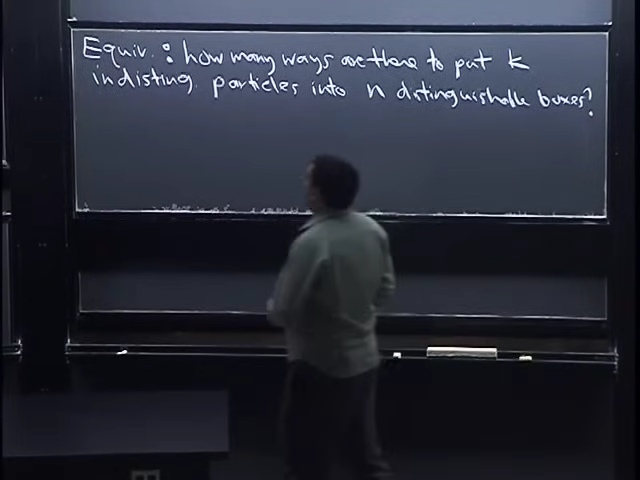 Equiv.: how many ways are there to put k
indisting. particles into n distinguishable boxes?